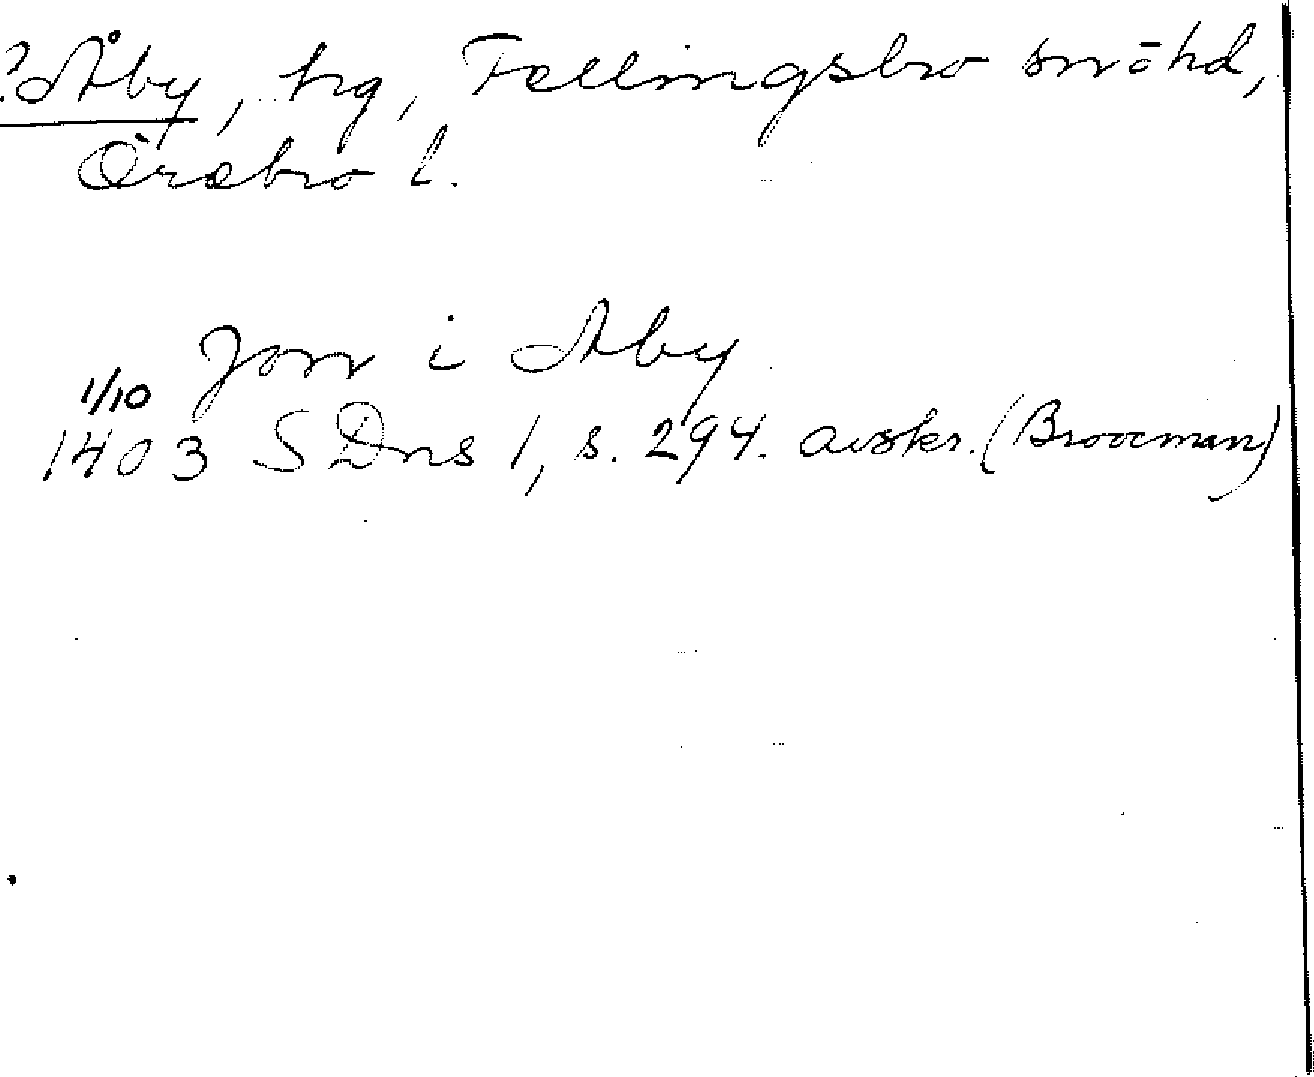 ?Åby, hg, Fellingsbro sn o hd,
Örebro l.
Jon i Aby
1/10
1403 SDns 1, s. 294. avskr. (Broocman)